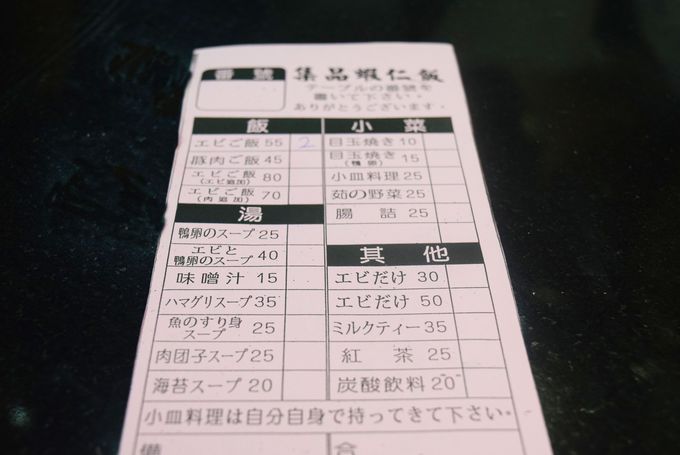 番號
集品蝦仁飯
テーブルの番號を
書いて下さい・
ありがとうございます・
飯
エビご飯 55 2
豚肉ご飯 45
エビご飯 80
(エビ追加)
エビご飯 70
(肉追加)
湯
鴨卵のスープ 25
エビと
鴨卵のスープ 40
味噌汁 15
ハマグリスープ 35
魚のすり身
スープ 25
肉団子スープ 25
海苔スープ 20
小菜
目玉焼き 10
目玉焼き 15
(鴨卵)
小皿料理 25
茹の野菜 25
腸詰 25
其他
エビだけ 30
エビだけ 50
ミルクティー 35
紅茶 25
炭酸飲料 20
小皿料理は自分自身で持ってきて下さい・
備
合